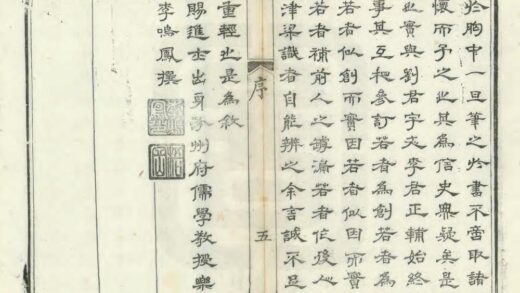 於胸中一旦筆之於書不啻取諸
懷而予之也其為信史無疑矣是
也實與劉君宇夾李君正輔始終
事其互相參訂若者為創若者為
若者似創而實因若者似因而實
若者補前人之漏若者作後人
津梁識者自能辨之余言誠不足
序
五
重輕也是為敘
賜進士出身汾州府儒學教授樂
李鳴鳳撰